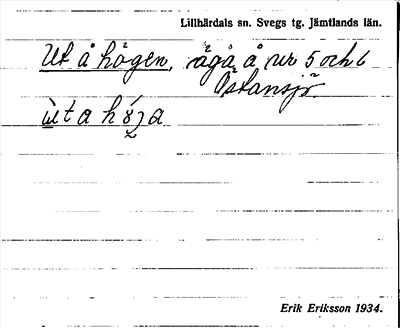 Lillhärdals sn. Svegs tg. Jämtlands län.
Ut å hågen, ägå å nr 5 och 6
Östansjö.
Erik Eriksson 1934.